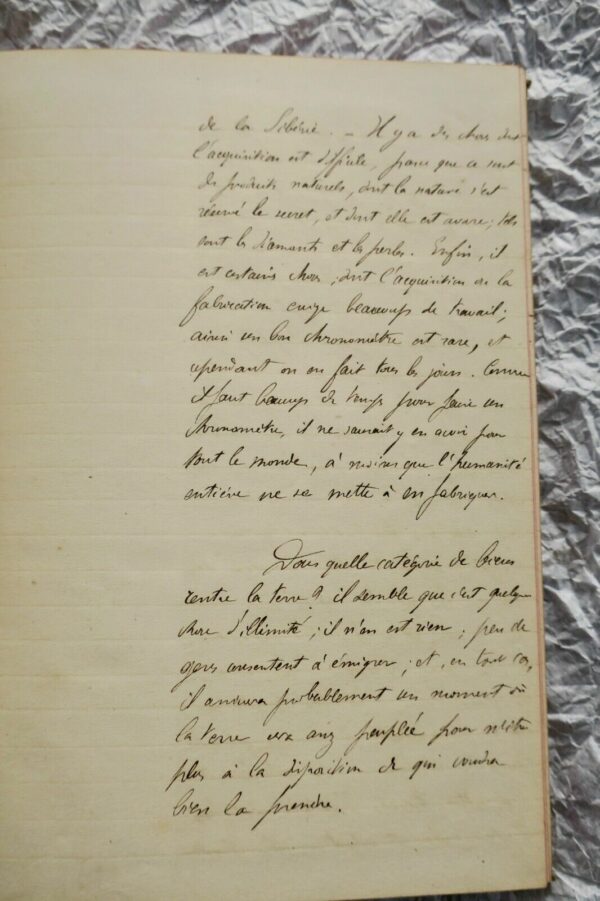 de la Sibérie. – Il y a des choses dont
l'acquisition est difficile, parce que ce sont
des produits naturels, dont la nature s'est
réservé le secret, et dont elle est avare; tels
sont les diamants et les perles. Enfin, il
est certaines choses, dont l'acquisition ou la
fabrication exige beaucoup de travail;
ainsi un bon chronomètre est rare, et
cependant on en fait tous les jours. Comme
il faut beaucoup de temps pour faire un
chronomètre, il ne saurait y en avoir pour
tout le monde, à moins que l'humanité
entière ne se mette à en fabriquer.
Dans quelle catégorie de biens
rentre la terre? il semble que c'est quelque
chose d'illimité; il n'en est rien; peu de
gens consentent à émigrer; et, en tout cas,
il arrivera probablement un moment où
la terre sera assez peuplée pour n'être
plus à la disposition de qui voudra
bien la prendre.